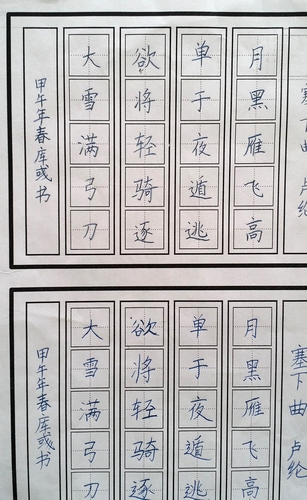 塞下曲卢纶
月黑雁飞高
单于夜遁逃
欲将轻骑逐
大雪满弓刀
甲午年春库或书
塞下曲卢纶
月黑雁飞高
单于夜遁逃
欲将轻骑逐
大雪满弓刀
甲午年春库或书